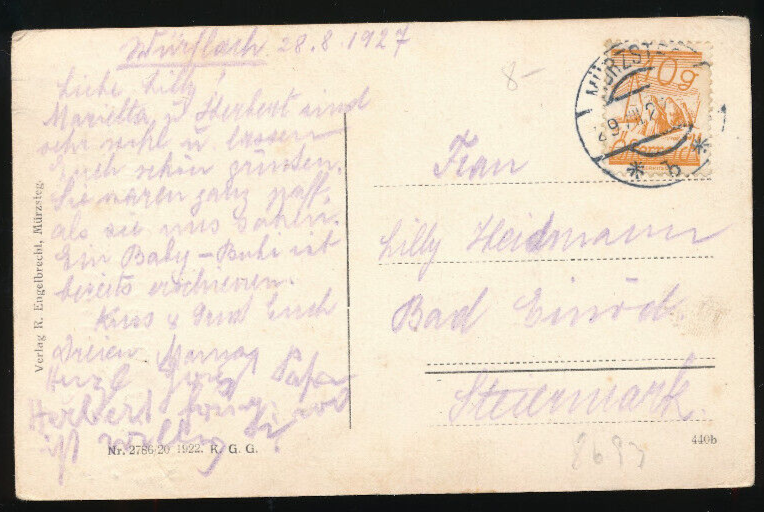 Würflach 28.8.1927
Liebe Lilly!
Marietta u Herbert sind
sehr wohl u. lassen
Euch schön grüssen.
Sie waren ganz paff,
als sie uns sahen.
Ein Baby-Bubi ist
bereits erschienen.
Kuss & Gruss Euch
Dreien Mama
Herzl Papa
Herbert
ist
Verlag R. Engelbrecht, Mürzsteg.
Nr. 2786/20 1922. R. G. G.
8-
MÜRZST
10g
b
Frau
Lilly Heidmann
Bad Einöd
Steiermark.
440b